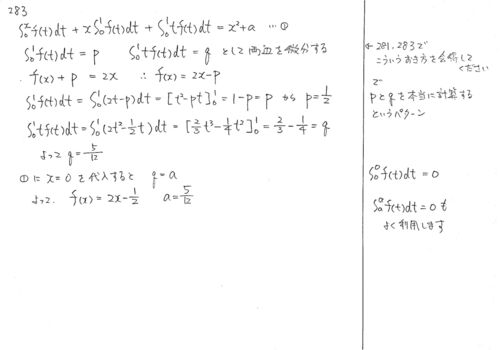 283
∫₀ˣf(t)dt + x∫₀¹f(t)dt + ∫₀¹tf(t)dt = x²+a …①
∫₀¹f(t)dt = p ∫₀¹tf(t)dt = q として両辺を微分する
f(x)+p = 2x ∴ f(x)= 2x-p
∫₀¹f(t)dt = ∫₀¹(2t-p)dt = [t²-pt]₀¹ = 1-p = p から p = 1/2
∫₀¹tf(t)dt = ∫₀¹(2t²-1/2t)dt = [2/3t³-1/4t²]₀¹ = 2/3-1/4 = q
よって q = 5/12
①に x=0 を代入すると q = a
よって f(x) = 2x-1/2 a = 5/12
← 281.283で
こういうおき方を
ください
で
pとqを本当に計算する
というパターン
∫₀⁰f(t)dt = 0
∫ₐᵃf(t)dt = 0 も
よく利用します